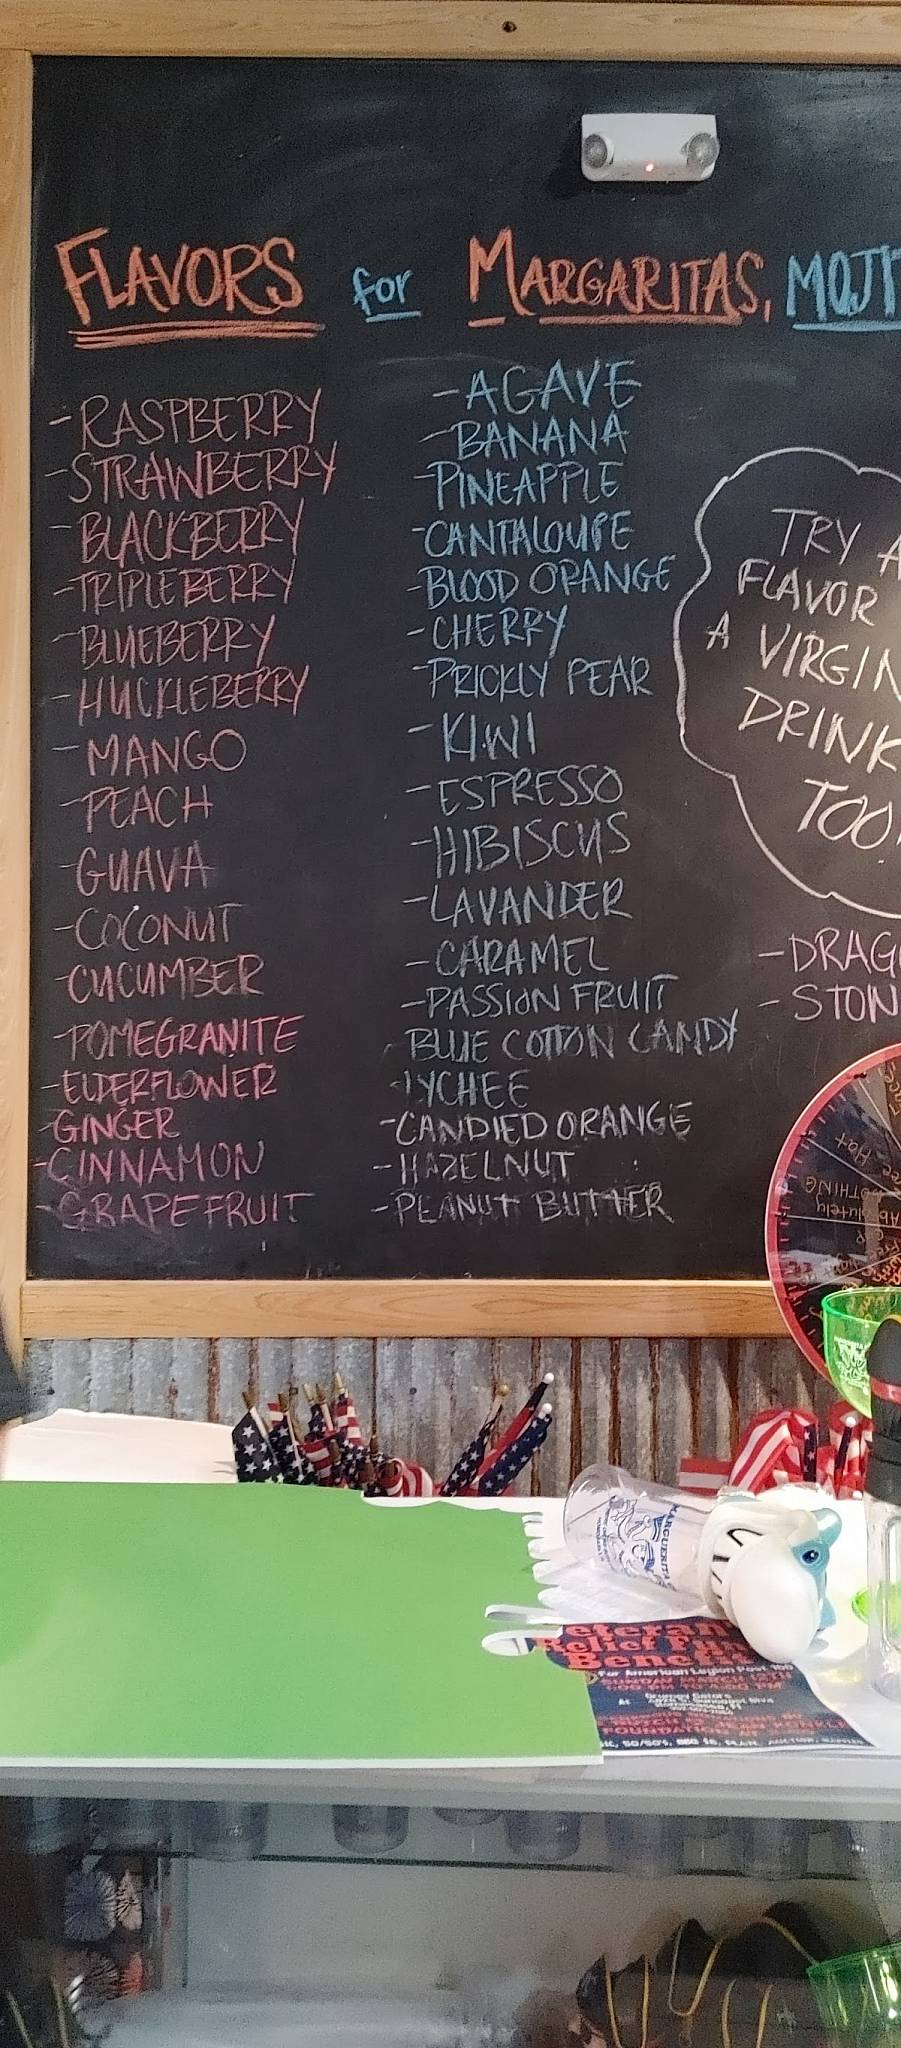 FLAVORS for MARGARITAS, MOJIT
- RASPBERRY
- STRAWBERRY
- BLACKBERRY
- TRIPLEBERRY
- BLUEBERRY
- HUCKLEBERRY
- MANGO
- PEACH
- GUAVA
- COCONUT
- CUCUMBER
- POMEGRANITE
- ELDERFLOWER
- GINGER
- CINNAMON
- GRAPEFRUIT
- AGAVE
- BANANA
- PINEAPPLE
- CANTALOUPE
- BLOOD ORANGE
- CHERRY
- PRICKLY PEAR
- KIWI
- ESPRESSO
- HIBISCUS
- LAVANDER
- CARAMEL
- PASSION FRUIT
- BLUE COTTON CANDY
- LYCHEE
- CANDIED ORANGE
- HAZELNUT
- PEANUT BUTTER
TRY A
FLAVOR
A VIRGIN
DRINK
TOO!
- DRAG
- STON
Absolutely
NOTHING
MARGUERITA
eteran
Relief Fun
Benefi
For American Legion Post 166
SUNDAY MARCH
1:00 PM
At Grumpy Gators